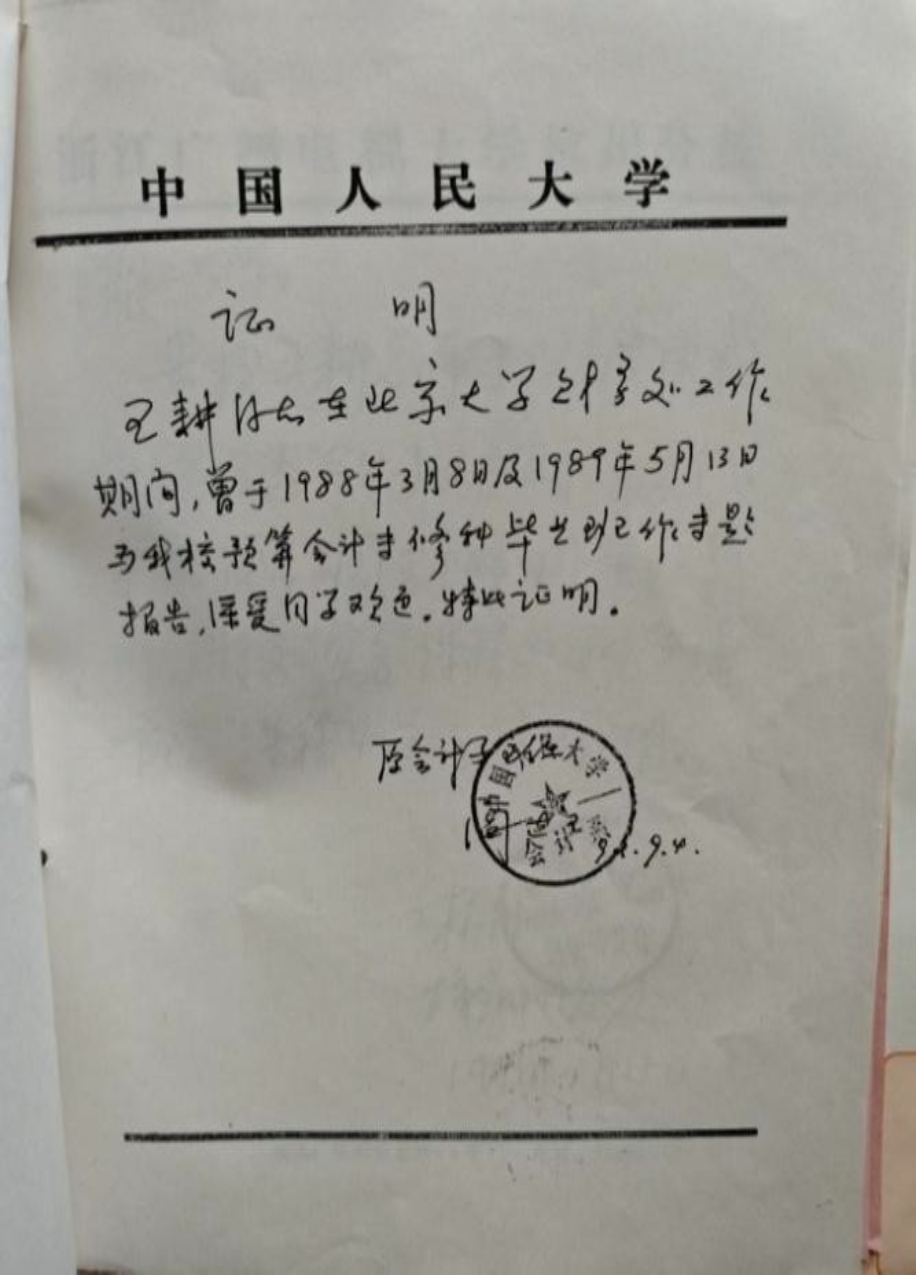 中国人民大学
证 明
王耕同志在北京大学财务处工作
期间，曾于1988年3月8日及1989年5月13日
为我校预算会计专修科毕业班工作专题
报告，深受同学欢迎。特此证明。
原会计系
中国人民大学
会计系
9.4.